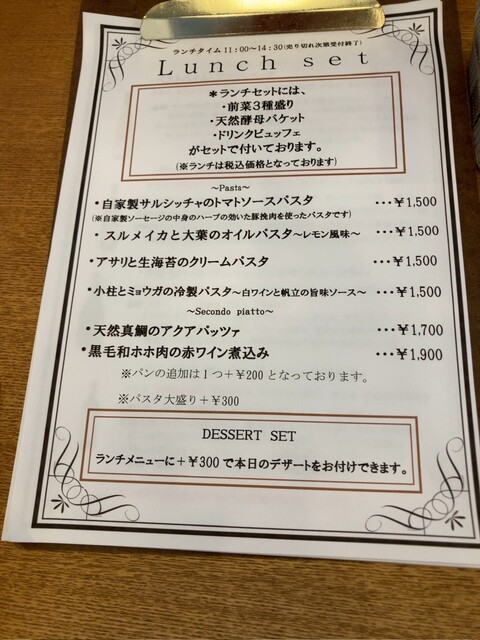 ランチタイム 11:00～14:30(売り切れ次第受付終了)
Lunch set
＊ランチセットには、
・前菜３種盛り
・天然酵母バケット
・ドリンクビュッフェ
がセットで付いております。
(※ランチは税込価格となっております)
～Pasts～
・自家製サルシッチャのトマトソースパスタ ・・・￥1,500
(※自家製ソーセージの中身のハーブの効いた豚挽肉を使ったパスタです)
・スルメイカと大葉のオイルパスタ～レモン風味～ ・・・￥1,500
・アサリと生海苔のクリームパスタ ・・・￥1,500
・小柱とミョウガの冷製パスタ～白ワインと帆立の旨味ソース～ ・・・￥1,500
～Secondo piatto～
・天然真鯛のアクアパッツァ ・・・￥1,700
・黒毛和ホホ肉の赤ワイン煮込み ・・・￥1,900
※パンの追加は１つ＋￥200 となっております。
※パスタ大盛り＋￥300
DESSERT SET
ランチメニューに＋￥300 で本日のデザートをお付けできます。